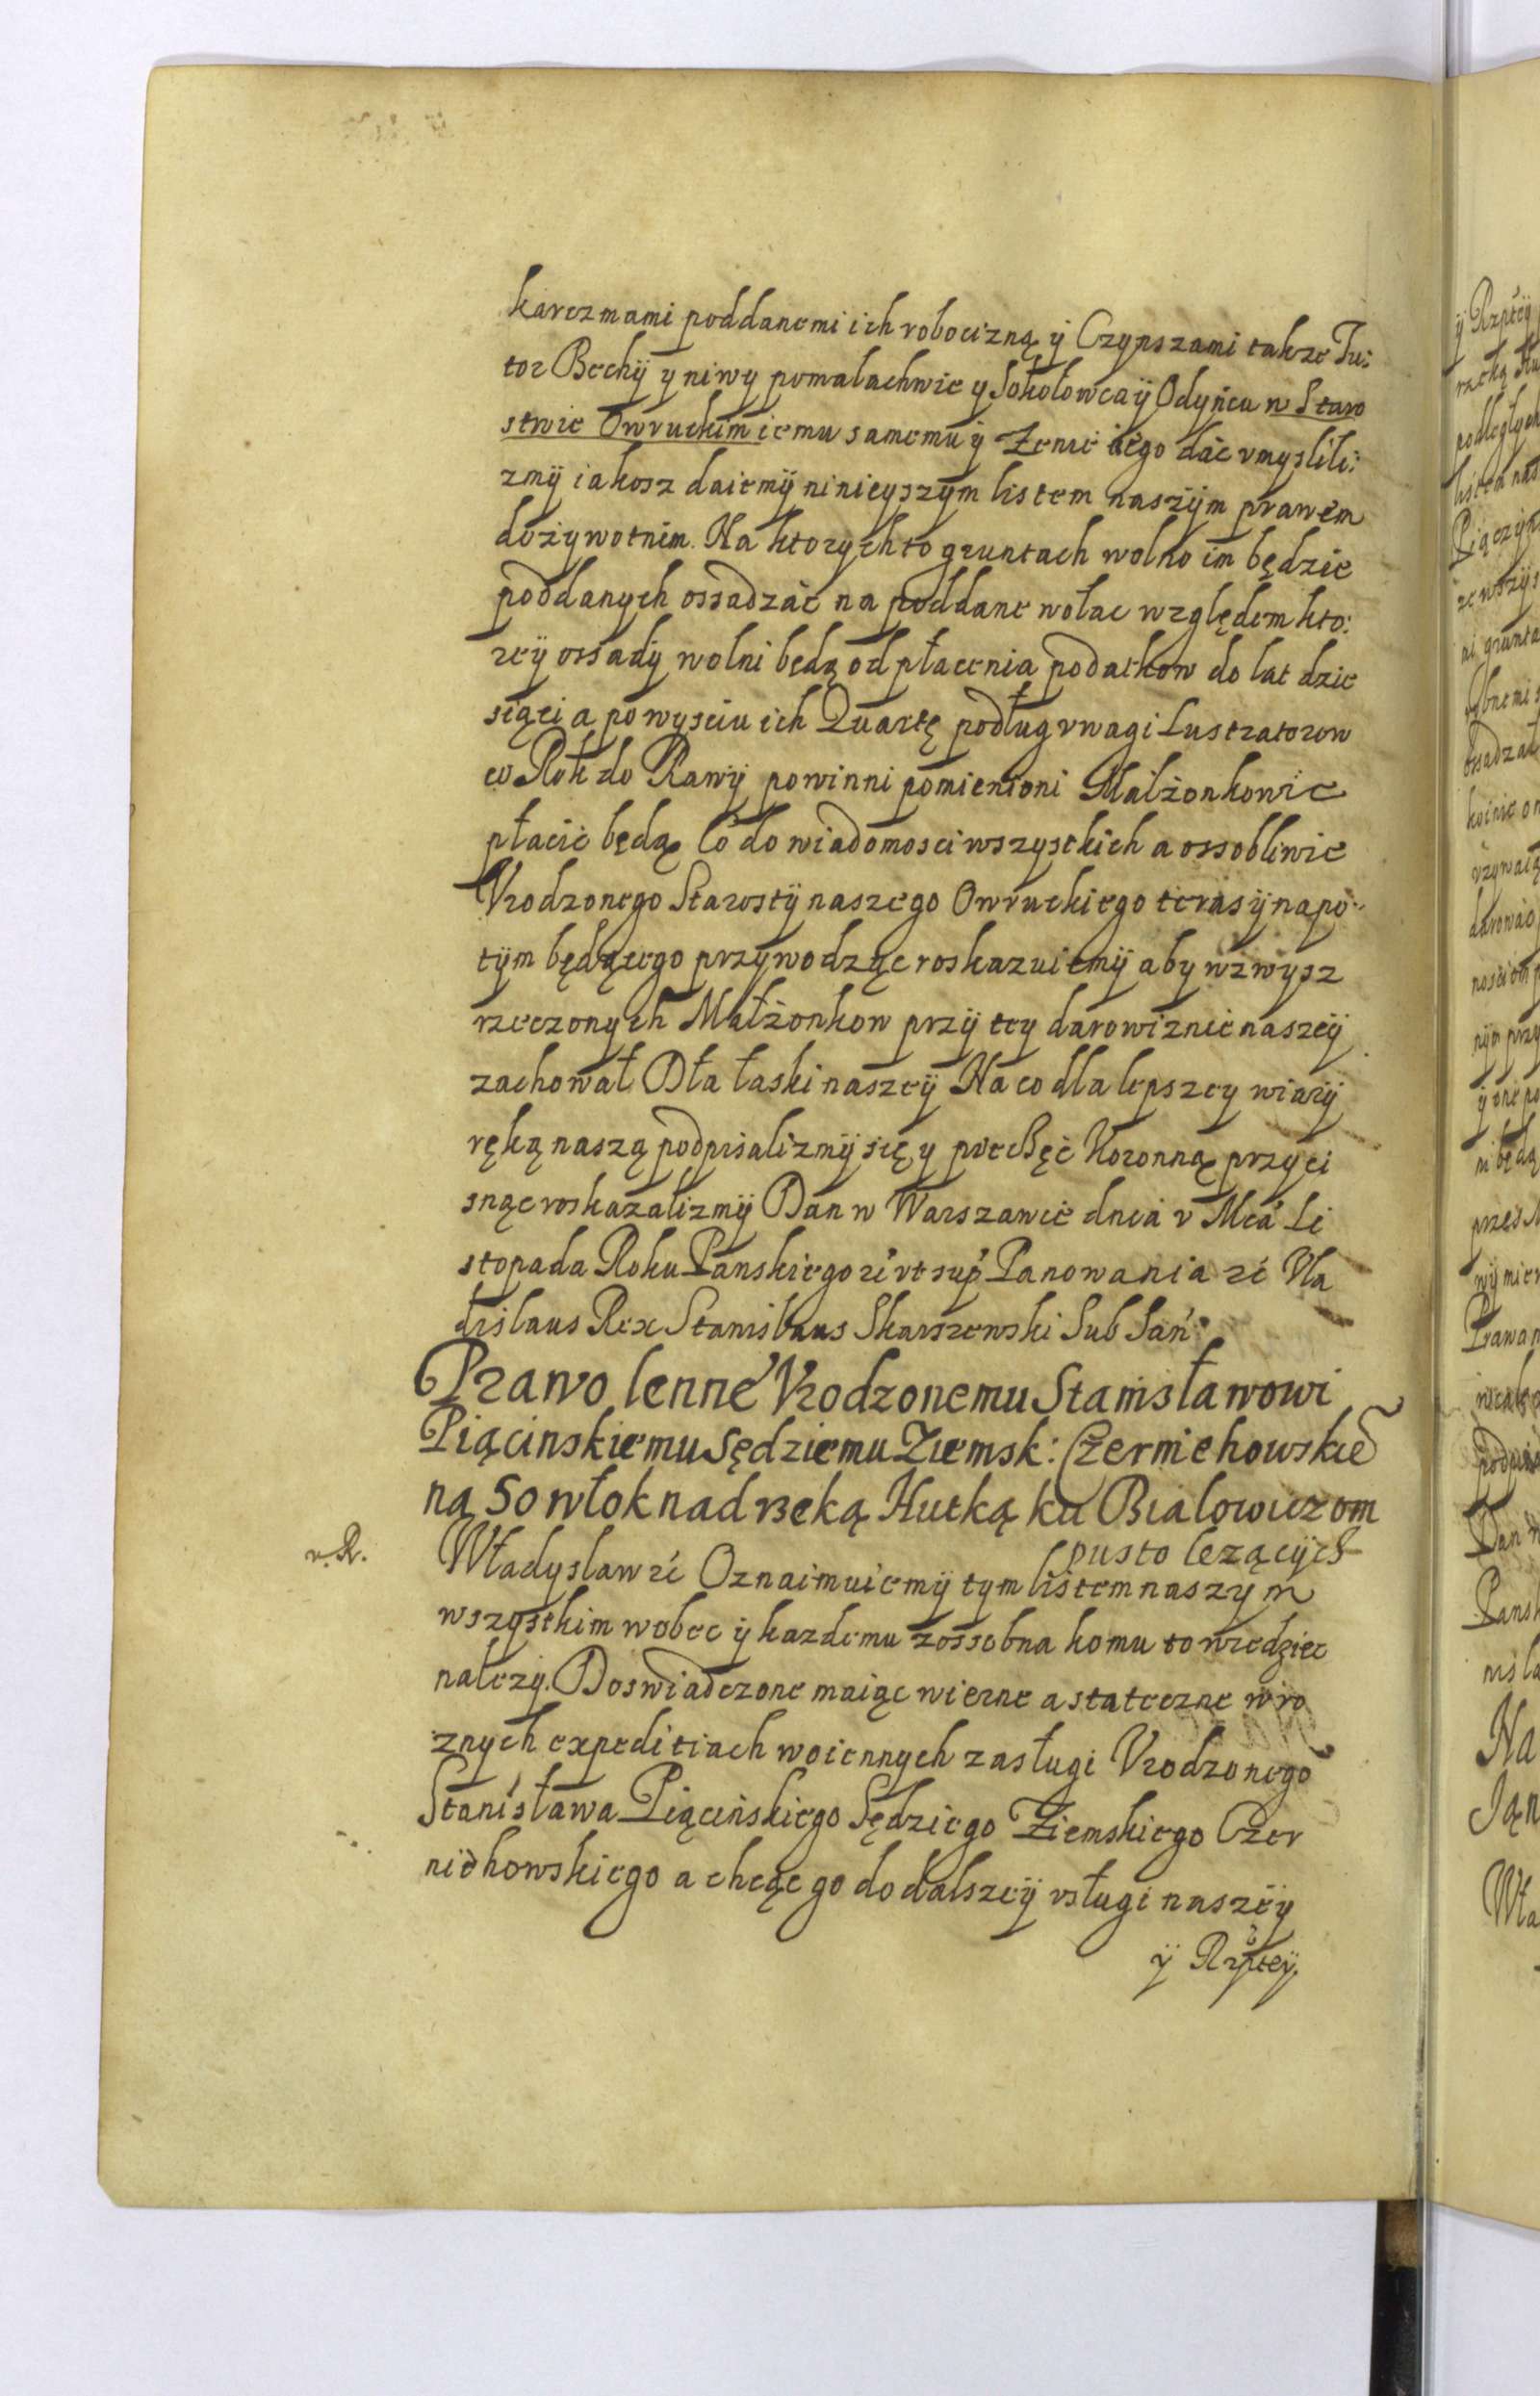 karczmami poddanemi ich robocizną ÿ Czynszami takze Fu:
tor Bechÿ y niwy pomalachwie y Sokołowca ÿ Odyńcu w Staro
stwie Owruckim iemu samemu ÿ Zenie iego dać vmyslili:
zmÿ iakosz daiemÿ ninieyszÿm listem naszÿm prawem
dożywotnim. Na ktorych to gruntach wolno im będzie
poddanych ossadzać na poddane wołac względem kto:
reÿ ossadÿ wolni będą od płacenia podatkow do lat dzie
siąci a po wysciu ich Quartę podług vwagi Lustratorow
co Rok do Rawÿ powinni pomienioni Małżonkowie
płacić będą Co do wiadomosci wszystkich a ossobliwie
Vrodzonego Starostÿ naszego Owruckiego teras ÿ napo:
tÿm będącego przywodząc roskazuiemÿ aby wzwysz
rzeczonych Małżonkow przÿ tey darowiznie naszeÿ
zachował Dla łaski naszeÿ Na co dla lepszey wiarÿ
ręką naszą podpisalizmÿ się y pieczęć Koronną przyci
snąc roskazalizmÿ Dan w Warszawie dnia v Mca Li
stopada Roku Panskiego zć vt sup Panowania zć Vla
dislaus Rex Stanislaus Skarszewski Sub San
Prawo lenne Vrodzonemu Stanisławowi
Piącinskiemu Sędziemu Ziemsk: Czerniehowskie
na 50 włok nad rzeką Hutką ku Bialowiczom
pusto lezącÿch
v. R. Władysław zć Oznaimuiemÿ tym listem naszym
wszystkim wobec ÿ kazdemu zossobna komu to wiedziec
nalezÿ. Doswiadczone maiąc wierne a stateczne w ro
znych expeditiach woiennych zasługi Vrodzonego
Stanisława Piącińskiego Sędziego Ziemskiego Czer
niehowskiego a chcąc go do dalszeÿ vsługi naszeÿ
ÿ Rzpteÿ.